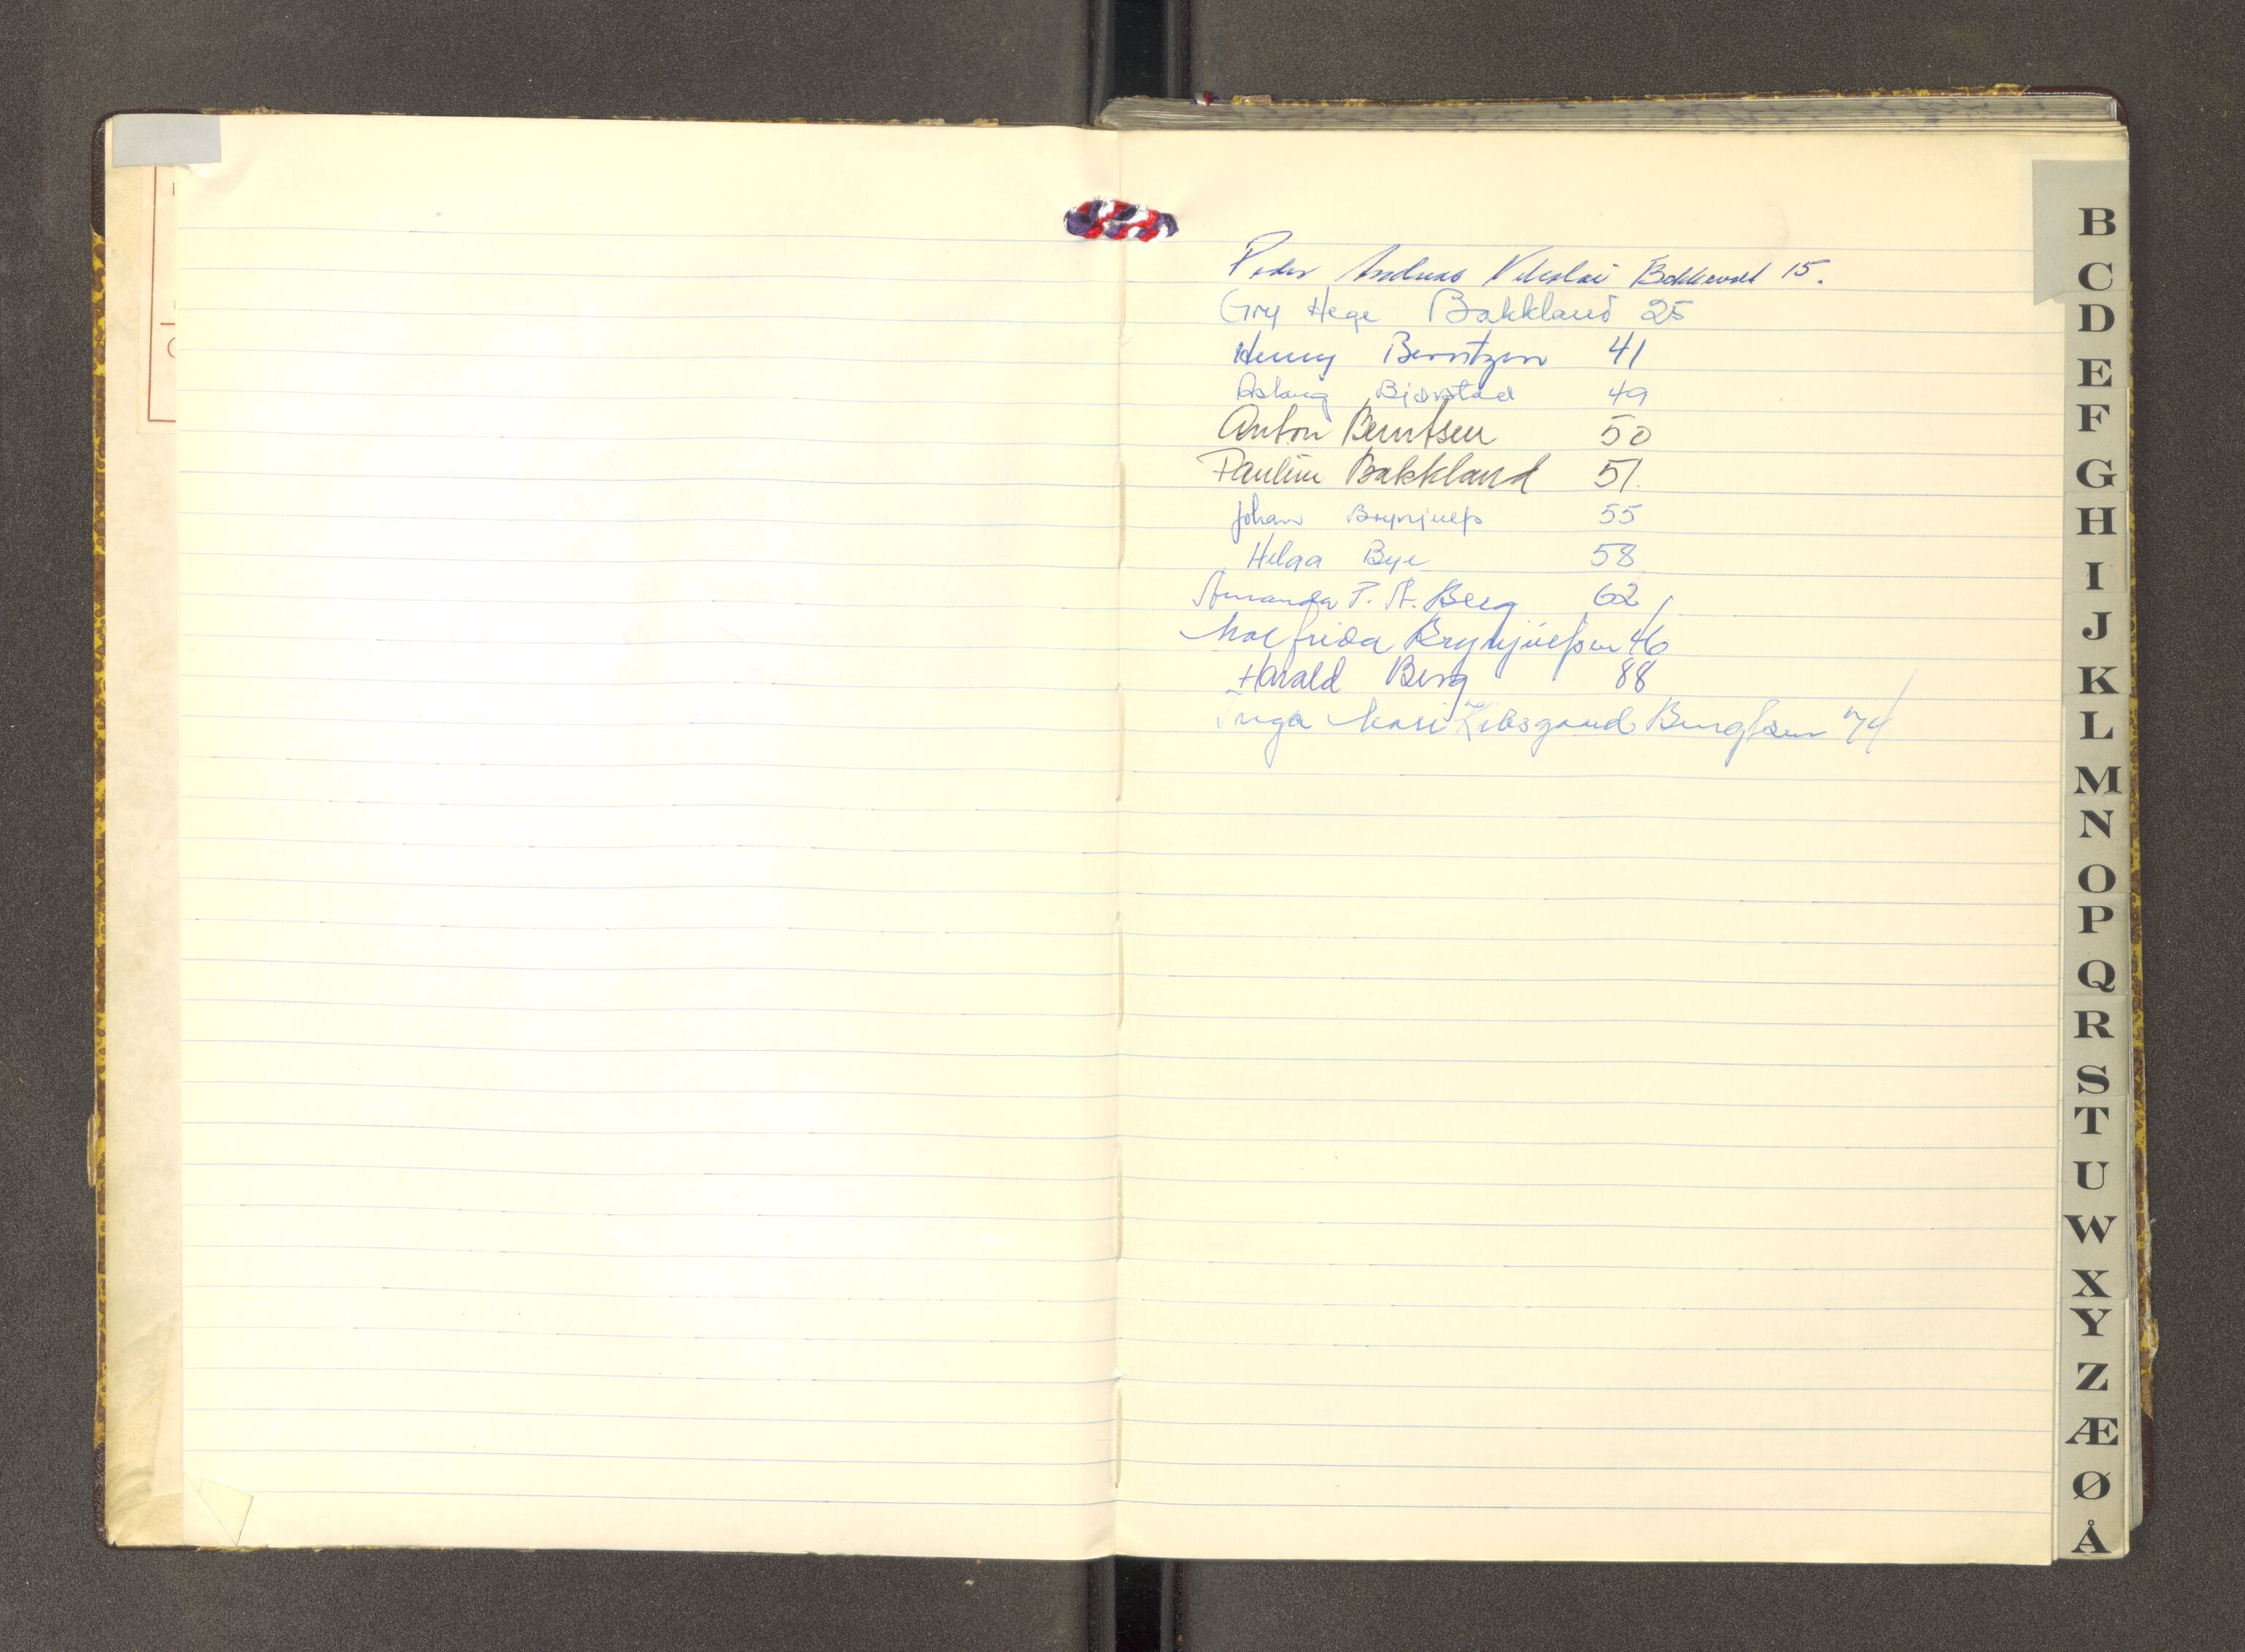 Peder Andreas Nikolai Bakkevold 15.
Gry Hege Bakkland 25
Henny Berntzen 41
Aslaug Bjørstad 49
Anton Berntsen 50
Pauline Bakkland 51.
Johan Brynjulfs 55
Helga Bye 58
Amanda T. A. Berg 62
Malfrida Brynjulfsen 46
Harald Berg 88
Inga Mari Bengtsen 74
B
C
D
E
F
G
H
I
J
K
L
M
N
O
P
Q
R
S
T
U
W
X
Y
Z
Æ
Ø
Å